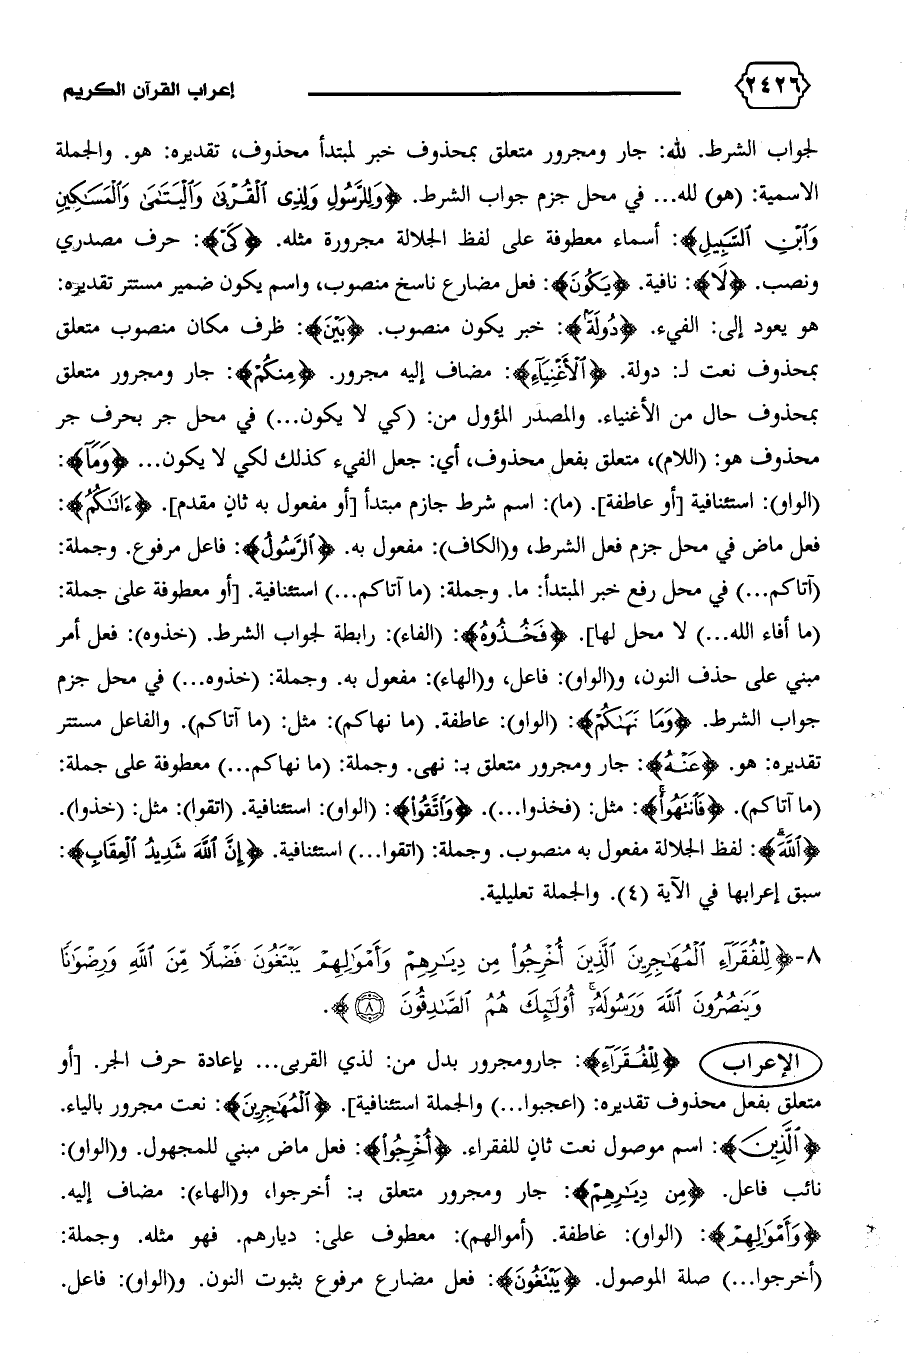 ٢٤٢٦ إعراب القرآن الكريم
لجواب الشرط. لله: جار ومجرور متعلق بمحذوف خبر لمبتدأ محذوف، تقديره: هو. والجملة
الاسمية: (هو) لله... في محل جزم جواب الشرط. ﴿وَلِلرَّسُولِ وَلِذِى ٱلْقُرْبَىٰ وَٱلْيَتَـٰمَىٰ وَٱلْمَسَـٰكِينِ
وَٱبْنِ ٱلسَّبِيلِ﴾: أسماء معطوفة على لفظ الجلالة مجرورة مثله. ﴿كَىْ﴾: حرف مصدري
ونصب. ﴿لَا﴾: نافية. ﴿يَكُونَ﴾: فعل مضارع ناسخ منصوب، واسم يكون ضمير مستتر تقديره:
هو يعود إلى: الفيء. ﴿دُولَةًۢ﴾: خبر يكون منصوب. ﴿بَيْنَ﴾: ظرف مكان منصوب متعلق
بمحذوف نعت لـ: دولة. ﴿ٱلْأَغْنِيَآءِ﴾: مضاف إليه مجرور. ﴿مِنكُمْ﴾: جار ومجرور متعلق
بمحذوف حال من الأغنياء. والمصدر المؤول من: (كي لا يكون...) في محل جر بحرف جر
محذوف هو: (اللام)، متعلق بفعل محذوف، أي: جعل الفيء كذلك لكي لا يكون... ﴿وَمَآ﴾:
(الواو): استئنافية [أو عاطفة]. (ما): اسم شرط جازم مبتدأ [أو مفعول به ثانٍ مقدم]. ﴿ءَاتَىٰكُمُ﴾:
فعل ماض في محل جزم فعل الشرط، و(الكاف): مفعول به. ﴿ٱلرَّسُولُ﴾: فاعل مرفوع. وجملة:
(آتاكم...) في محل رفع خبر المبتدأ: ما. وجملة: (ما آتاكم...) استئنافية. [أو معطوفة على جملة:
(ما أفاء الله...) لا محل لها]. ﴿فَخُذُوهُ﴾: (الفاء): رابطة لجواب الشرط. (خذوه): فعل أمر
مبني على حذف النون، و(الواو): فاعل، و(الهاء): مفعول به. وجملة: (خذوه...) في محل جزم
جواب الشرط. ﴿وَمَا نَهَىٰكُمْ﴾: (الواو): عاطفة. (ما نهاكم): مثل: (ما آتاكم). والفاعل مستتر
تقديره: هو. ﴿عَنْهُ﴾: جار ومجرور متعلق بـ: نهى. وجملة: (ما نهاكم...) معطوفة على جملة:
(ما آتاكم). ﴿فَٱنتَهُوا۟ۚ﴾: مثل: (فخذوا...). ﴿وَٱتَّقُوا۟﴾: (الواو): استئنافية. (اتقوا): مثل: (خذوا).
﴿ٱللَّهَۖ﴾: لفظ الجلالة مفعول به منصوب. وجملة: (اتقوا...) استئنافية. ﴿إِنَّ ٱللَّهَ شَدِيدُ ٱلْعِقَابِ﴾:
سبق إعرابها في الآية (٤). والجملة تعليلية.
٨-﴿لِلْفُقَرَآءِ ٱلْمُهَـٰجِرِينَ ٱلَّذِينَ أُخْرِجُوا۟ مِن دِيَـٰرِهِمْ وَأَمْوَٰلِهِمْ يَبْتَغُونَ فَضْلًا مِّنَ ٱللَّهِ وَرِضْوَٰنًا
وَيَنصُرُونَ ٱللَّهَ وَرَسُولَهُۥٓۚ أُو۟لَـٰٓئِكَ هُمُ ٱلصَّـٰدِقُونَ ٨﴾.
الإعراب ﴿لِلْفُقَرَآءِ﴾: جارومجرور بدل من: لذي القربى... بإعادة حرف الجر. [أو
متعلق بفعل محذوف تقديره: (اعجبوا...) والجملة استئنافية]. ﴿ٱلْمُهَـٰجِرِينَ﴾: نعت مجرور بالياء.
﴿ٱلَّذِينَ﴾: اسم موصول نعت ثان للفقراء. ﴿أُخْرِجُوا۟﴾: فعل ماض مبني للمجهول. و(الواو):
نائب فاعل. ﴿مِن دِيَـٰرِهِمْ﴾: جار ومجرور متعلق بـ: أخرجوا، و(الهاء): مضاف إليه.
﴿وَأَمْوَٰلِهِمْ﴾: (الواو): عاطفة. (أموالهم): معطوف على: ديارهم. فهو مثله. وجملة:
(أخرجوا...) صلة الموصول. ﴿يَبْتَغُونَ﴾: فعل مضارع مرفوع بثبوت النون. و(الواو): فاعل.